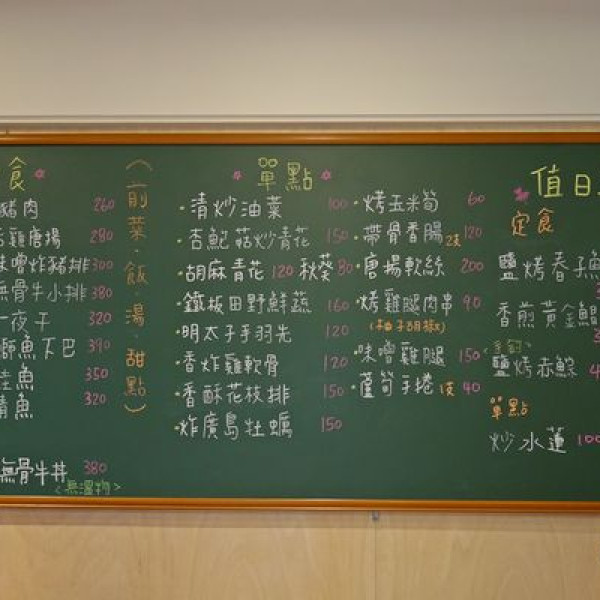 食
豬肉 260
雞唐揚 280
味噌炸豬排 300
無骨牛小排 380
一夜干 320
魚下巴 390
鮭魚 350
鯖魚 320
無骨牛丼 380
<無溫物>
(前菜·飯·湯·甜點)
單點
·清炒油菜 100
·杏鮑菇炒青花 150
·胡麻青花 120 秋葵 80
·鐵板田野鮮蔬 160
·明太子手羽先 120
·香炸雞軟骨 120
·香酥花枝排 150
·炸廣島牡蠣 150
·烤玉米筍 60
·帶骨香腸 2支 120
·唐揚軟絲 200
·烤雞腿肉串 90
(柚子胡椒)
·味噌雞腿 150
·蘆筍手捲 1支 40
值日
定食
鹽烤春子魚
香煎黃金鯧
鹽烤赤鯮
單點
炒水蓮 100